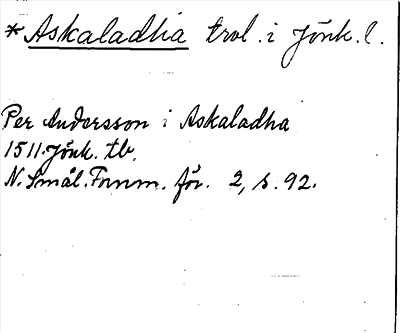 *Askaladha trol. i Jönk. l.
Per Andersson i Askaladha
1511. Jönk. tb.
N. Smål. Fornm. för. 2, s. 92.